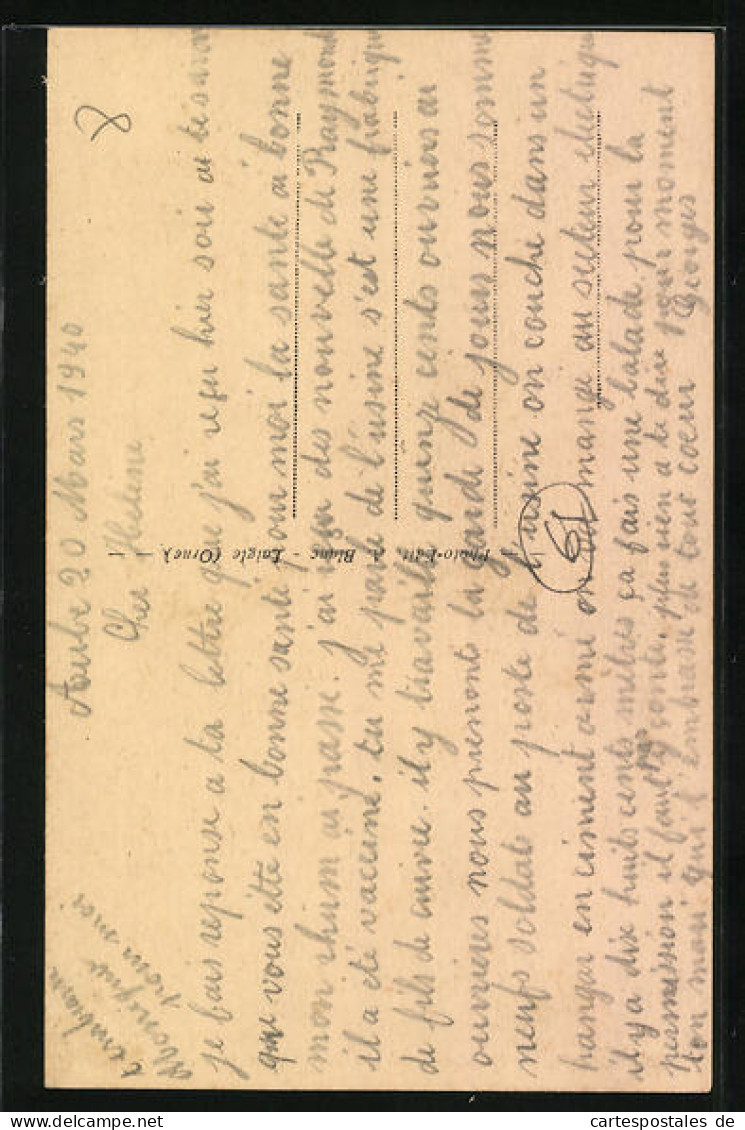 Aube 20 Mars 1940
Cher Helene
je fais reponse a la lettre que j'ai reçu hier soir ai té savoir
que vous ètte en bonne santé pour moi la santé ai bonne
mon rhum ai passe. J'ai reçu des nouvelle de Raymond
il a été vacciné. tu me parle de l'usine s'est une fabrique
de fils de cuivre. il y travaille quinze cents ouvriers ai
ouvrieres nous prenont la garde de jours nous somme
neufs soldats au poste de l'usine on couche dans un
hangar en ciment armé on mange au secteur électrique
il y a dix huits cents mètres ça fais une balade pour la
permission il faut pas y conté, plus rien a te dire pour moment
ton mari qui t'embrasse de tout coeur Georges
embrasse
Monique
pour moi
Photo-Edit. A. Blanc - Laigle (Orne).
8
61
cartespostales de